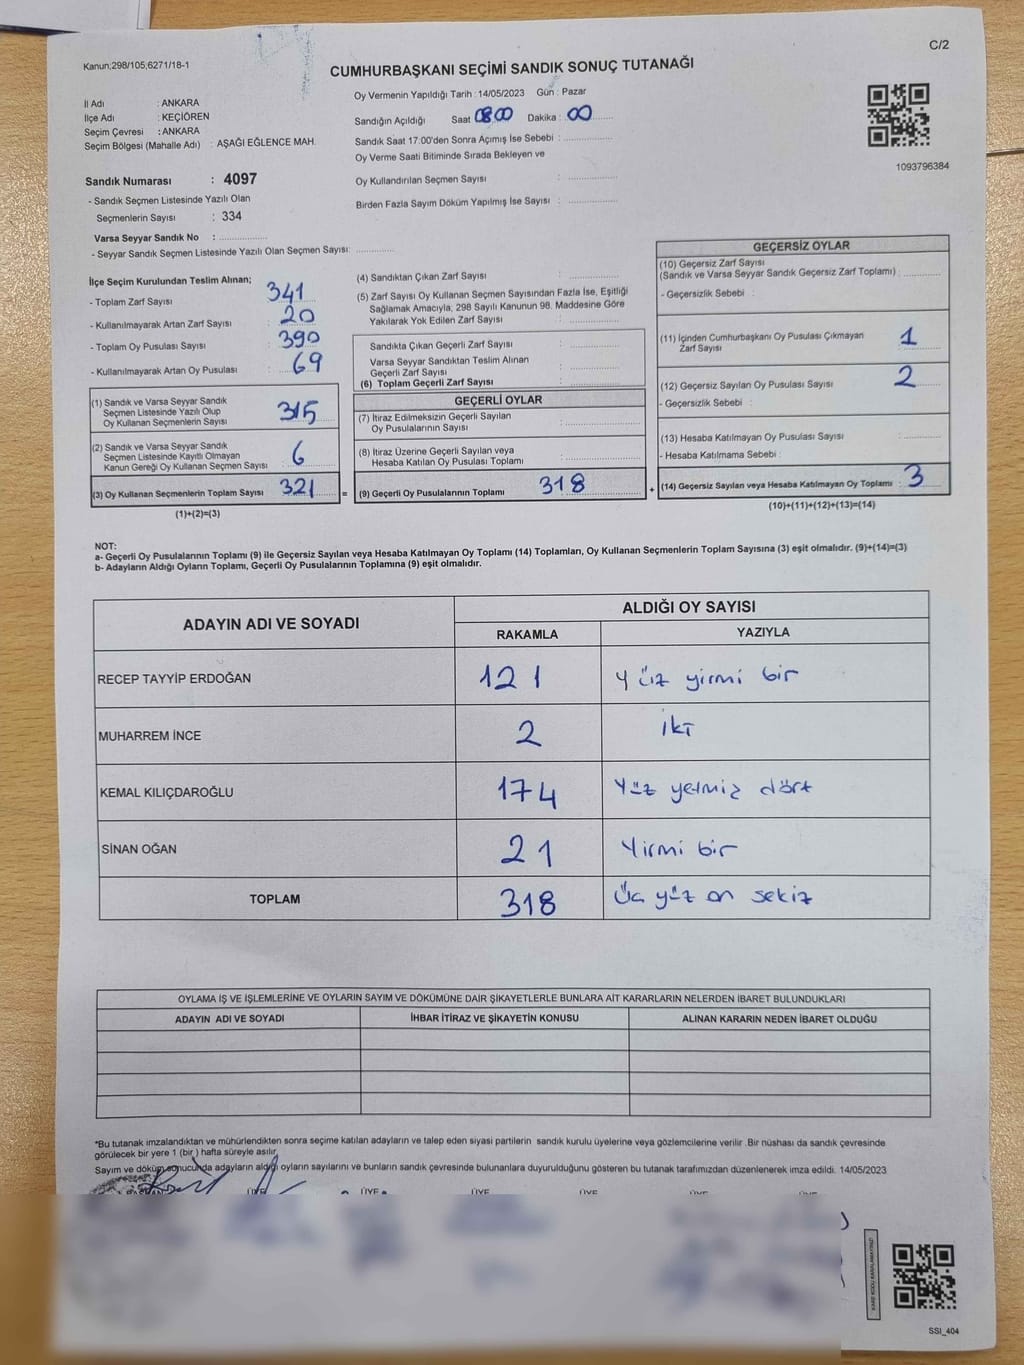 C/2
Kanun:298/105,6271/18-1
CUMHURBAŞKANI SEÇİMİ SANDIK SONUÇ TUTANAĞI
İl Adı : ANKARA
İlçe Adı : KEÇİÖREN
Seçim Çevresi : ANKARA
Seçim Bölgesi (Mahalle Adı) : AŞAĞI EĞLENCE MAH.
Sandık Numarası : 4097
- Sandık Seçmen Listesinde Yazılı Olan
Seçmenlerin Sayısı : 334
Varsa Seyyar Sandık No :
- Seyyar Sandık Seçmen Listesinde Yazılı Olan Seçmen Sayısı:
Oy Vermenin Yapıldığı Tarih : 14/05/2023 Gün : Pazar
Sandığın Açıldığı Saat 08:00 Dakika : 00
Sandık Saat 17.00'den Sonra Açımış İse Sebebi :
Oy Verme Saati Bitiminde Sırada Bekleyen ve
Oy Kullandırılan Seçmen Sayısı :
Birden Fazla Sayım Döküm Yapılmış İse Sayısı :
1093796384
İlçe Seçim Kurulundan Teslim Alınan;
- Toplam Zarf Sayısı : 341
- Kullanılmayarak Artan Zarf Sayısı : 20
- Toplam Oy Pusulası Sayısı : 390
- Kullanılmayarak Artan Oy Pusulası : 69
(1) Sandık ve Varsa Seyyar Sandık
Seçmen Listesinde Yazılı Olup
Oy Kullanan Seçmenlerin Sayısı : 315
(2) Sandık ve Varsa Seyyar Sandık
Seçmen Listesinde Kayıtlı Olmayan
Kanun Gereği Oy Kullanan Seçmen Sayısı : 6
(3) Oy Kullanan Seçmenlerin Toplam Sayısı : 321 =
(1)+(2)=(3)
(4) Sandıktan Çıkan Zarf Sayısı :
(5) Zarf Sayısı Oy Kullanan Seçmen Sayısından Fazla İse, Eşitliği
Sağlamak Amacıyla; 298 Sayılı Kanunun 98. Maddesine Göre
Yakılarak Yok Edilen Zarf Sayısı :
Sandıkta Çıkan Geçerli Zarf Sayısı :
Varsa Seyyar Sandıktan Teslim Alınan
Geçerli Zarf Sayısı :
(6) Toplam Geçerli Zarf Sayısı :
GEÇERLİ OYLAR
(7) İtiraz Edilmeksizin Geçerli Sayılan
Oy Pusulalarının Sayısı :
(8) İtiraz Üzerine Geçerli Sayılan veya
Hesaba Katılan Oy Pusulası Toplamı :
(9) Geçerli Oy Pusulalarının Toplamı 318 +
GEÇERSİZ OYLAR
(10) Geçersiz Zarf Sayısı
(Sandık ve Varsa Seyyar Sandık Geçersiz Zarf Toplamı) :
- Geçersizlik Sebebi :
(11) İçinden Cumhurbaşkanı Oy Pusulası Çıkmayan
Zarf Sayısı 1
(12) Geçersiz Sayılan Oy Pusulası Sayısı : 2
- Geçersizlik Sebebi :
(13) Hesaba Katılmayan Oy Pusulası Sayısı :
- Hesaba Katılmama Sebebi :
(14) Geçersiz Sayılan veya Hesaba Katılmayan Oy Toplamı : 3
(10)+(11)+(12)+(13)=(14)
NOT:
a- Geçerli Oy Pusulalarının Toplamı (9) ile Geçersiz Sayılan veya Hesaba Katılmayan Oy Toplamı (14) Toplamları, Oy Kullanan Seçmenlerin Toplam Sayısına (3) eşit olmalıdır. (9)+(14)=(3)
b- Adayların Aldığı Oyların Toplamı, Geçerli Oy Pusulalarının Toplamına (9) eşit olmalıdır.
ADAYIN ADI VE SOYADI
ALDIĞI OY SAYISI
RAKAMLA YAZIYLA
RECEP TAYYİP ERDOĞAN 121 Yüz yirmi bir
MUHARREM İNCE 2 iki
KEMAL KILIÇDAROĞLU 174 Yüz yetmiz dört
SİNAN OĞAN 21 Yirmi bir
TOPLAM 318 Üç yüz on sekiz
OYLAMA İŞ VE İŞLEMLERİNE VE OYLARIN SAYIM VE DÖKÜMÜNE DAİR ŞİKAYETLERLE BUNLARA AİT KARARLARIN NELERDEN İBARET BULUNDUKLARI
ADAYIN ADI VE SOYADI İHBAR İTİRAZ VE ŞİKAYETİN KONUSU ALINAN KARARIN NEDEN İBARET OLDUĞU
*Bu tutanak imzalandıktan ve mühürlendikten sonra seçime katılan adayların ve talep eden siyasi partilerin sandık kurulu üyelerine veya gözlemcilerine verilir .Bir nüshası da sandık çevresinde
görülecek bir yere 1 (bir ) hafta süreyle asılır.
Sayım ve döküm sonucunda adayların aldığı oyların sayılarını ve bunların sandık çevresinde bulunanlara duyurulduğunu gösteren bu tutanak tarafımızdan düzenlenerek imza edildi. 14/05/2023
BAŞKAN ÜYE ÜYE ÜYE ÜYE ÜYE ÜYE
SSİ_404